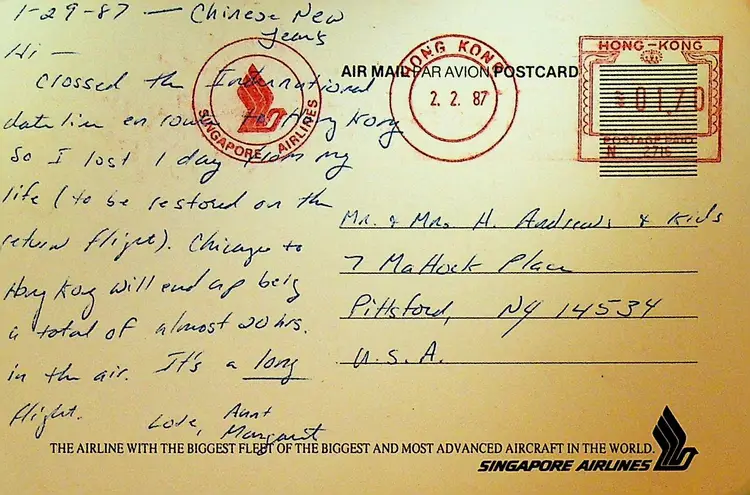 1-29-87 — Chinese New
Years
Hi —
Crossed the International
date line en route to Hong Kong
so I lost 1 day from my
life (to be restored on the
return flight). Chicago to
Hong Kong will end up being
a total of almost 20 hrs.
in the air. It's a long
flight.
Love, Aunt
Margaret
SINGAPORE AIRLINES
AIR MAIL PAR AVION POSTCARD
HONG KONG
2. 2. 87
HONG-KONG
$ 01.70
POSTAGE PAID
N 2716
Mr. & Mrs H. Andrews & Kids
7 Mattock Place
Pittsford, NY 14534
U.S.A.
THE AIRLINE WITH THE BIGGEST FLEET OF THE BIGGEST AND MOST ADVANCED AIRCRAFT IN THE WORLD.
SINGAPORE AIRLINES